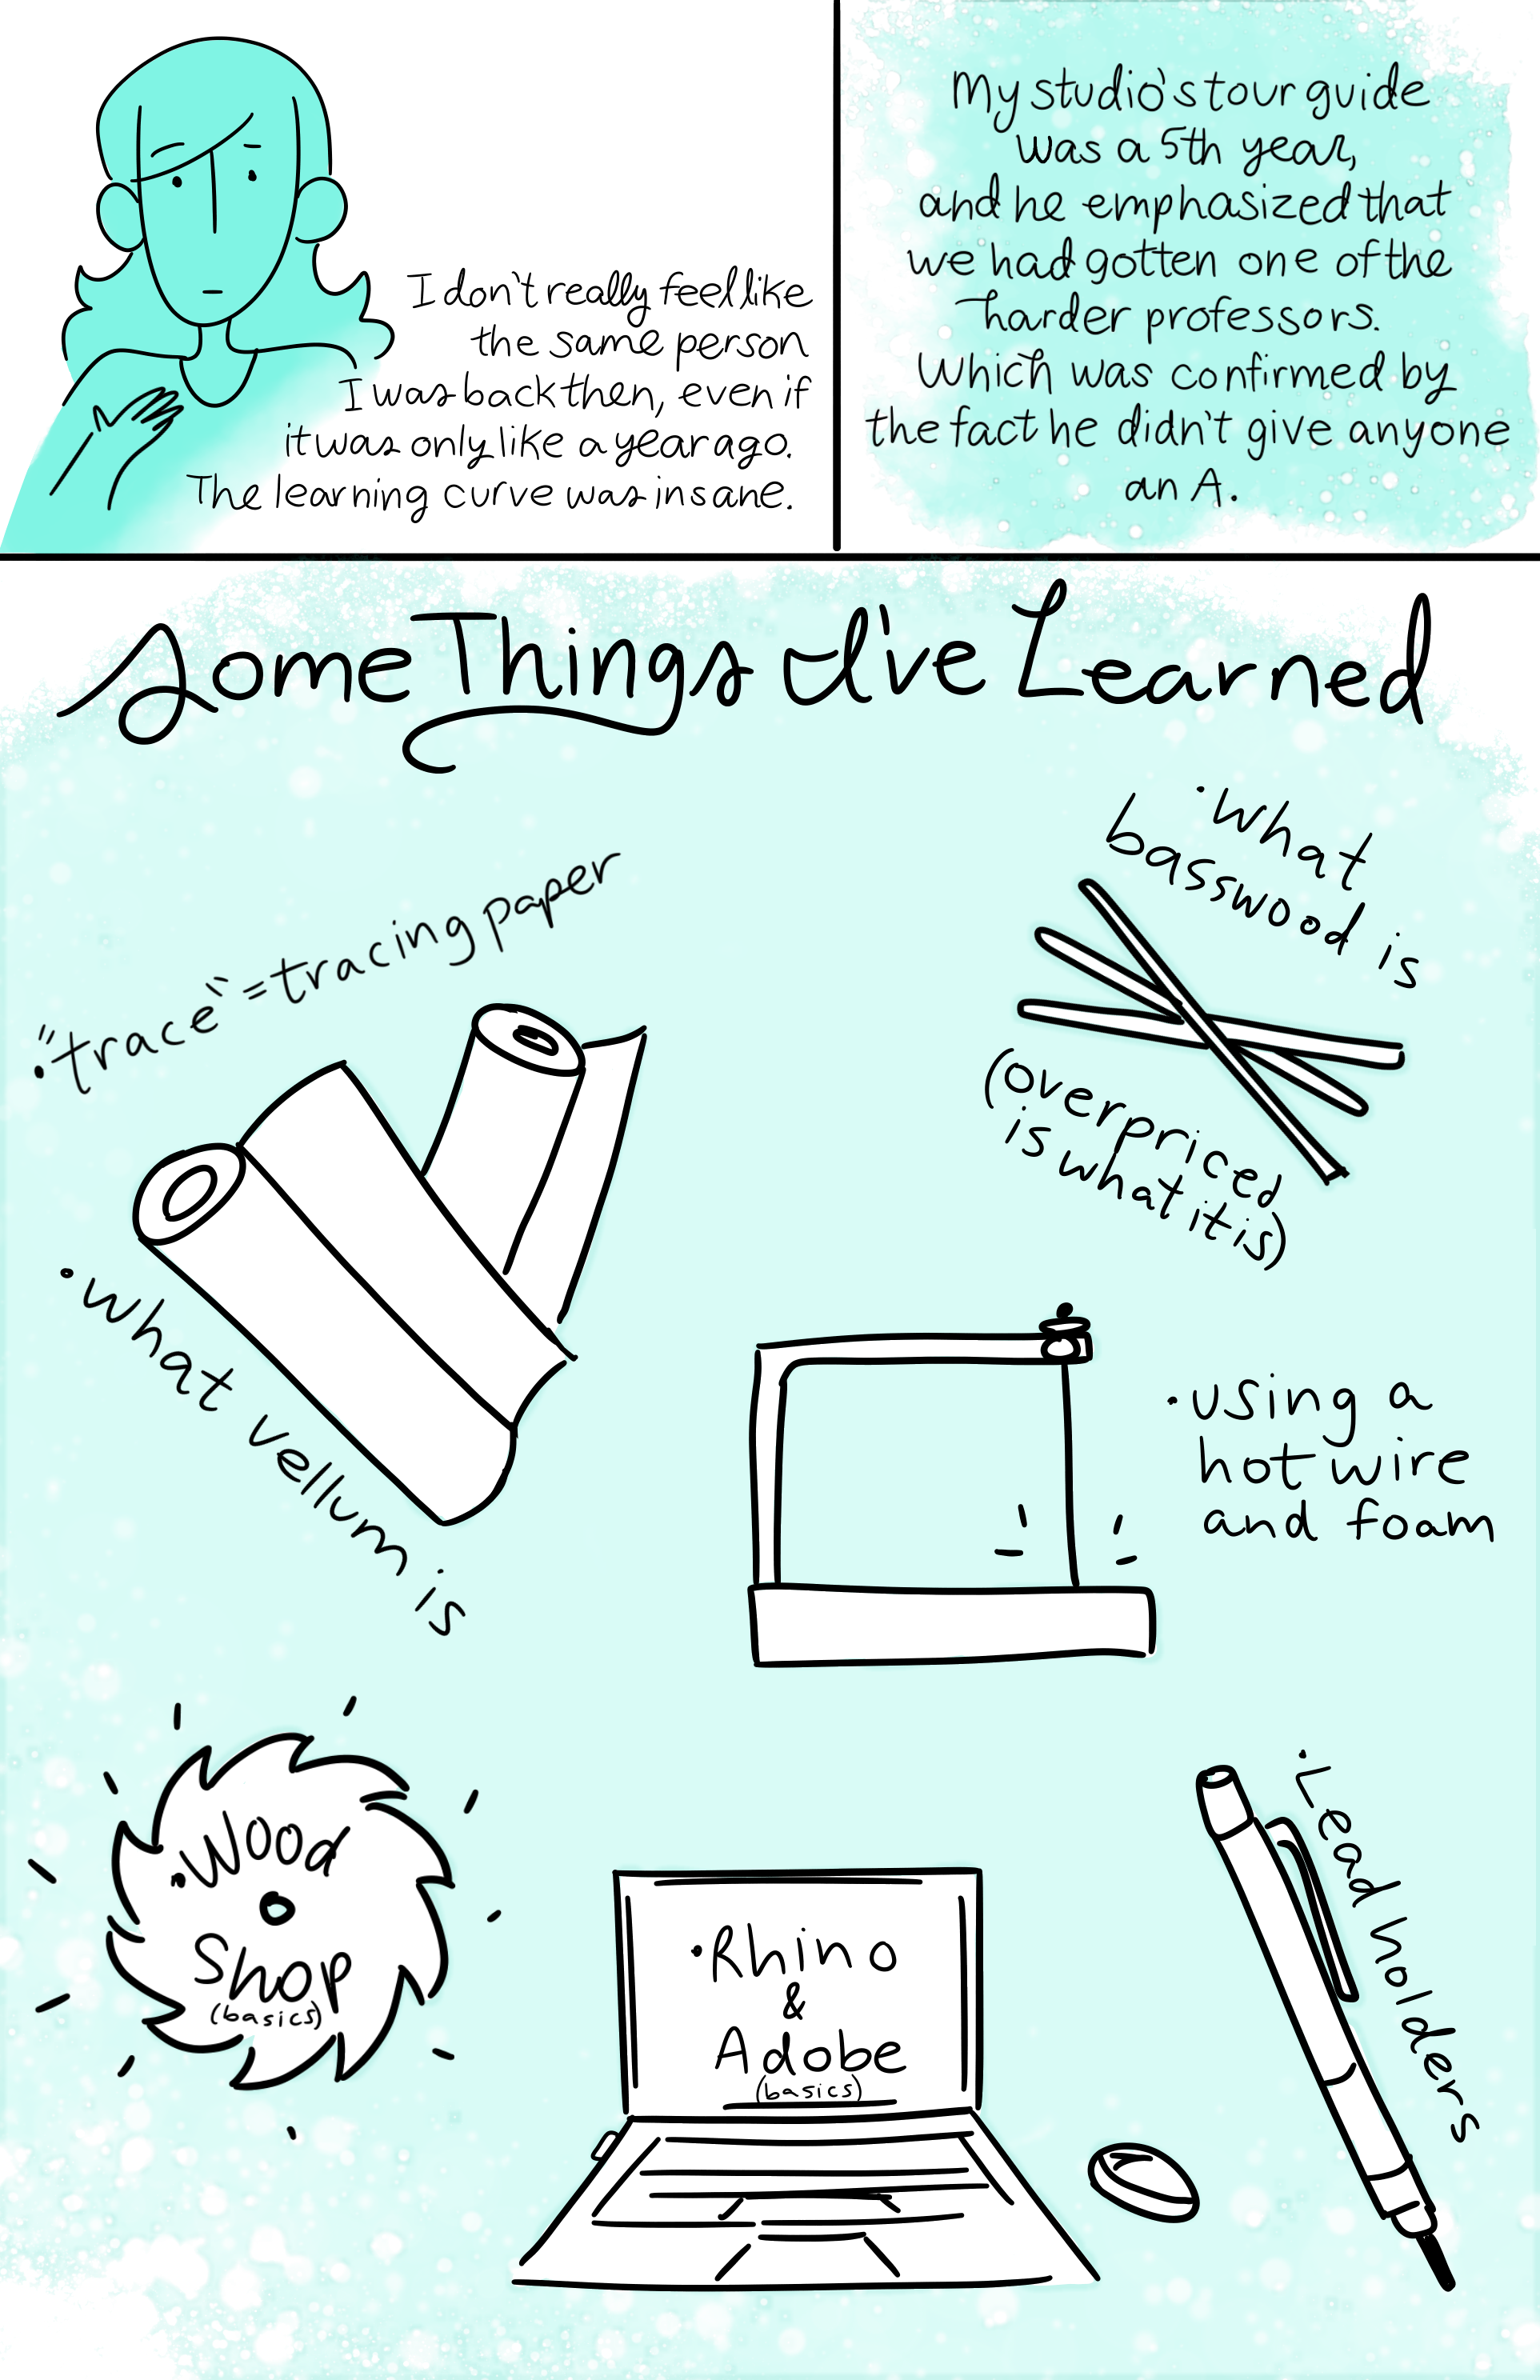 I don't really feel like
the same person
I was back then, even if
it was only like a year ago.
The learning curve was insane.
My studio's tour guide
was a 5th year,
and he emphasized that
we had gotten one of the
harder professors.
Which was confirmed by
the fact he didn't give anyone
an A.
Some Things I've Learned
•"trace"=tracing paper
•What
basswood is
(overpriced
is what it is)
•what vellum is
•using a
hot wire
and foam
•Wood
Shop
(basics)
•Rhino
&
Adobe
(basics)
•Lead holders